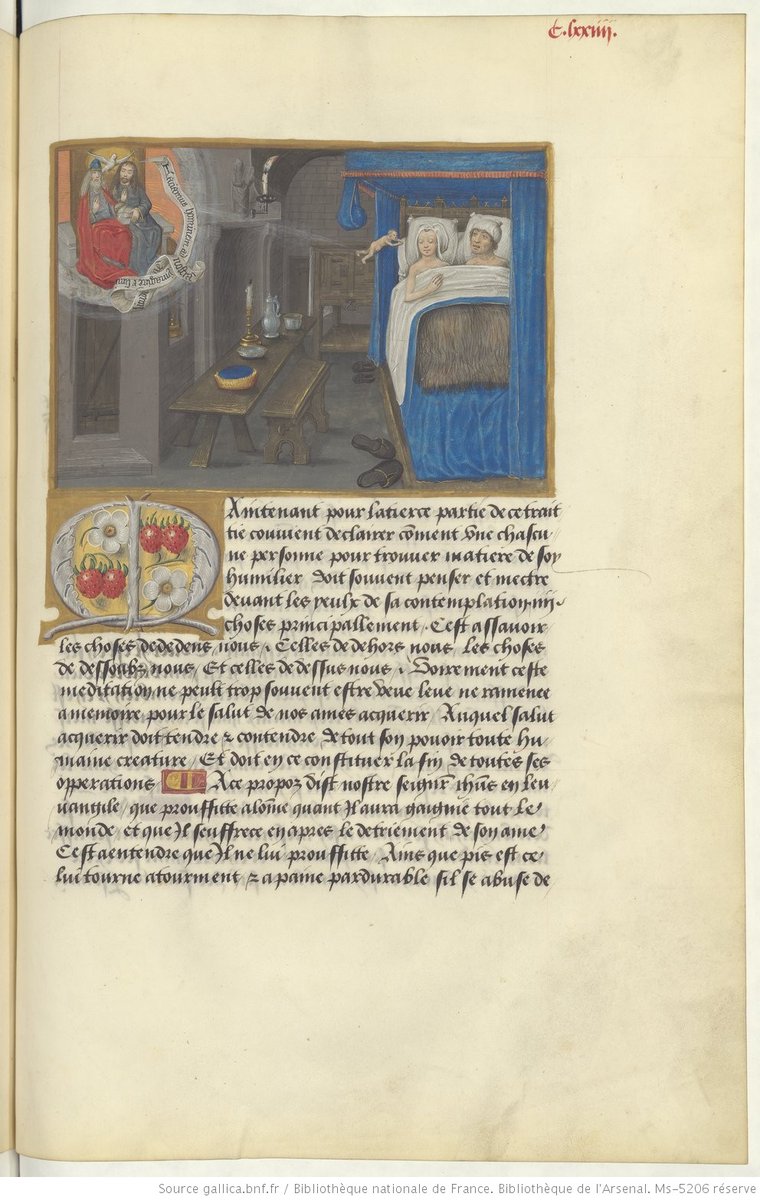 C.lxxiiii.
Faciamus hominem ad
ymaginem et similitudinem
Maintenant pour la tierce partie de ce trait
tie convient declairer cõment vne chascu
ne personne pour trouver matiere de soy
humilier doit souvent penser et mectre
devant les yeulx de sa contemplation .iiii.
choses principallement . Cest assavoir
les choses dededens nous , Celles dedehors nous , les choses
de dessoubz nous , Et celles dedessus nous , Voirement ceste
meditation ne peult trop souvent estre veue leue ne ramenee
a memoire pour le salut de nos ames acquerir , Auquel salut
acquerir doit tendre & contendre de tout son povoir toute hu
maine creature , Et doit en ce constituer la fin de toutes ses
opperations ¶ A ce propoz dist nostre seignr̃ ihũs en leu
vangile , que prouffitte a lõme quant Il aura gaignie tout le
monde et que Il seuffrece en apres le detriement de son ame
Cest a entendre que Il ne lui prouffitte , Ains que pis est ce
lui tourne a tourment & a paine pardurable sil se abuse de
Source gallica.bnf.fr / Bibliothèque nationale de France. Bibliothèque de l'Arsenal. Ms-5206 réserve